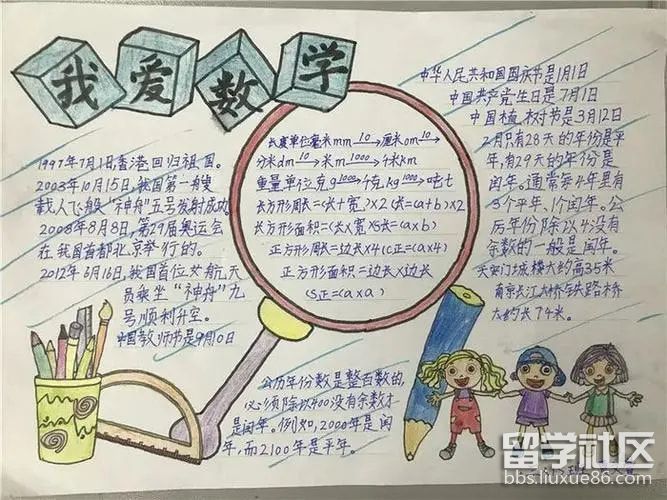 我爱数学
1997年7月1日香港回归祖国。
2003年10月15日,我国第一艘
载人飞船“神舟”五号发射成功。
2008年8月8日,第29届奥运会
在我国首都北京举行的。
2012年6月16日,我国首位女航天
员乘坐“神舟”九
号顺利升空。
中国教师节是9月10日
长度单位毫米mm 10→厘米cm 10→
分米dm 10→米m 1000→千米km
重量单位克g 1000→千克kg 1000→吨t
长方形周长=(长+宽)×2 (长=(a+b)×2
长方形面积=(长×宽)S长=(a×b)
正方形周长=边长×4 (C正=(a×4)
正方形面积=边长×边长
(S正=(a×a)
中华人民共和国国庆节是1月1日
中国共产党生日是7月1日
中国植树节是3月12日
2月只有28天的年份是平
年,有29天的年份是
闰年。通常每4年里有
3个平年、1个闰年。公
历年份除以4没有
余数的一般是闰年。
天安门城楼大约高35米
南京长江大桥铁路桥
大约长7千米。
公历年份数是整百数的,
必须除以400没有余数才
是闰年。例如,2000年是闰
年,而2100年是平年。
留学社区
bbs.liuxue86.com